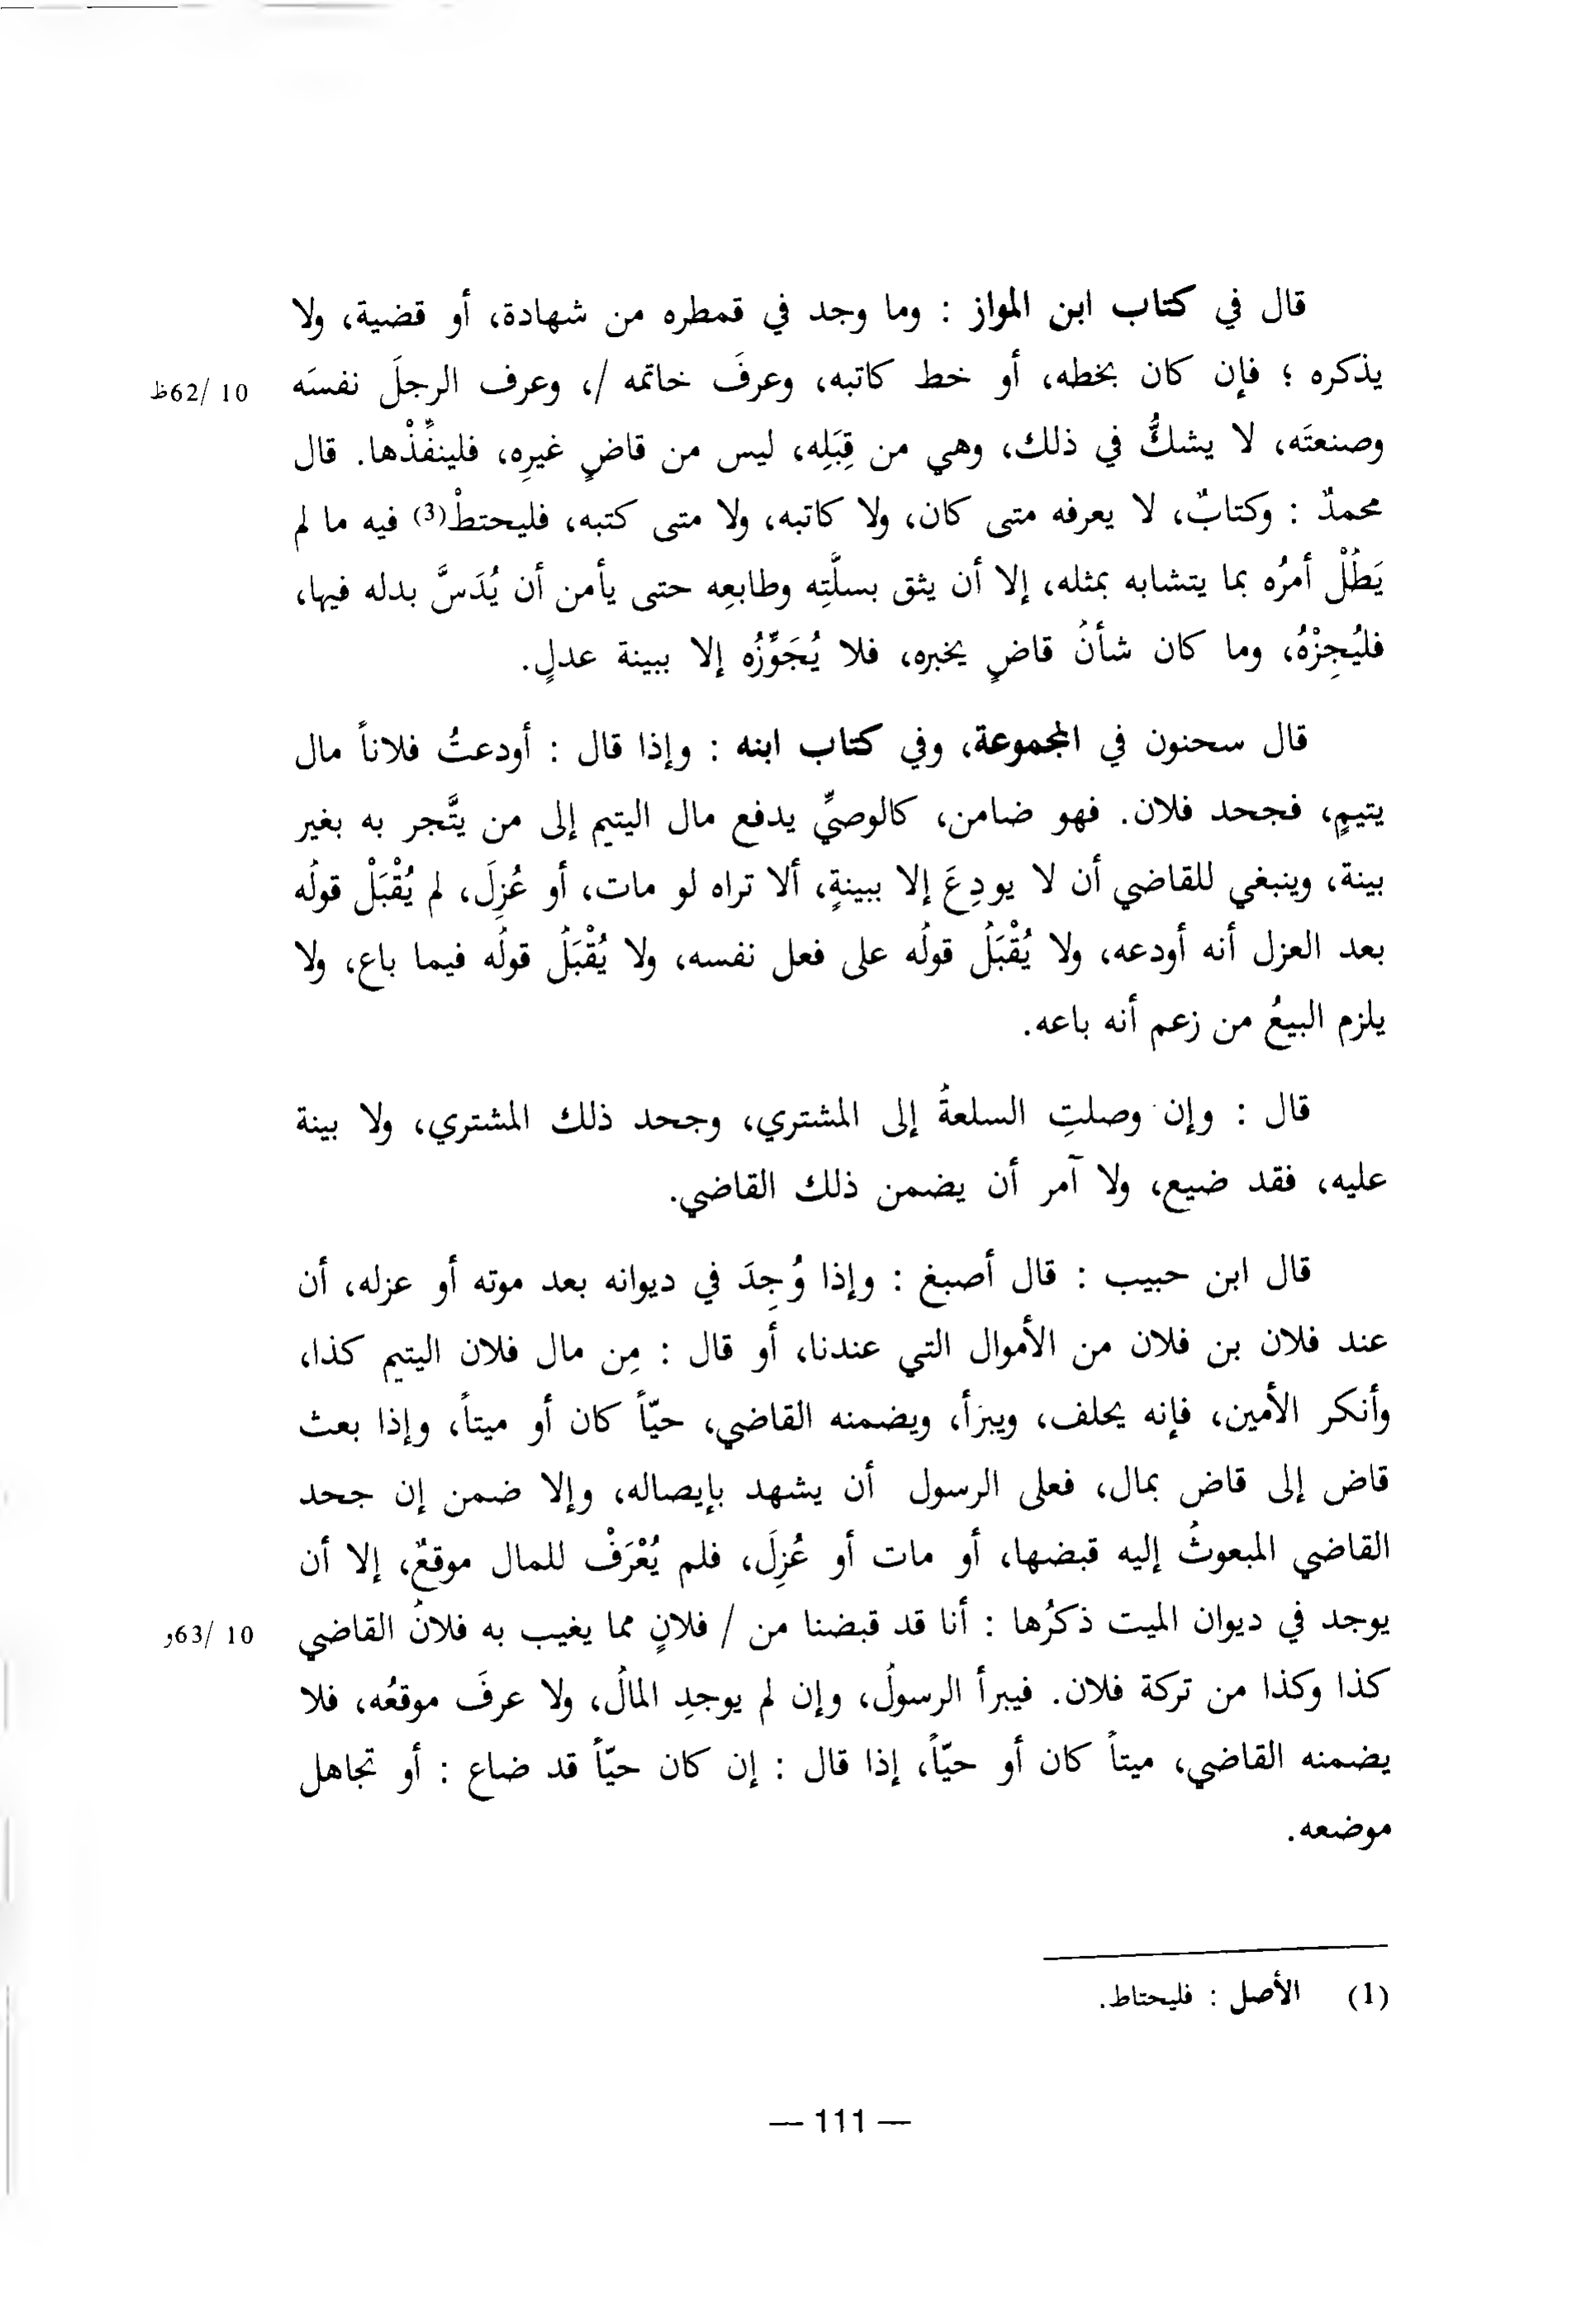 قال في كتاب ابن المواز : وما وجد في قمطره من شهادة، أو قضية، ولا
يذكره ؛ فإن كان بخطه، أو خط كاتبه، وعرفَ خاتمه /، وعرف الرجلَ نفسَه
10 /62ظ
وصنعتَه، لا يشكُّ في ذلك، وهي من قِبَلِه، ليس من قاضٍ غيرِه، فلينفِّذْها. قال
محمدٌ : وكتابٌ، لا يعرفه متى كان، ولا كاتبه، ولا متى كتبه، فليحتطْ(3) فيه ما لم
يَطُلْ أمرُه بما يتشابه بمثله، إلا أن يثق بسلَّتِه وطابعِه حتى يأمن أن يُدَسَّ بدله فيها،
فليُجِزْهُ، وما كان شأنُ قاضٍ يخبره، فلا يُجَوِّزُه إلا ببينة عدلٍ.
قال سحنون في المجموعة، وفي كتاب ابنه : وإذا قال : أودعتُ فلاناً مال
يتيمٍ، فجحد فلان. فهو ضامن، كالوصيِّ يدفع مال اليتيم إلى من يتَّجر به بغير
بينة، وينبغي للقاضي أن لا يودِعَ إلا ببينةٍ، ألا تراه لو مات، أو عُزِلَ، لم يُقْبَلْ قولُه
بعد العزل أنه أودعه، ولا يُقْبَلُ قولُه على فعل نفسه، ولا يُقْبَلُ قولُه فيما باع، ولا
يلزم البيعُ من زعم أنه باعه.
قال : وإن وصلتِ السلعةُ إلى المشتري، وجحد ذلك المشتري، ولا بينة
عليه، فقد ضيع، ولا آمر أن يضمن ذلك القاضي.
قال ابن حبيب : قال أصبغ : وإذا وُجِدَ في ديوانه بعد موته أو عزله، أن
عند فلان بن فلان من الأموال التي عندنا، أو قال : مِن مال فلان اليتيم كذا،
وأنكر الأمين، فإنه يحلف، ويبرأ، ويضمنه القاضي، حيّاً كان أو ميتاً، وإذا بعث
قاض إلى قاض بمال، فعلى الرسول أن يشهد بإيصاله، وإلا ضمن إن جحد
القاضي المبعوثُ إليه قبضها، أو مات أو عُزِلَ، فلم يُعْرَفْ للمال موقعٌ، إلا أن
يوجد في ديوان الميت ذكرُها : أنا قد قبضنا من / فلانٍ مما يغيب به فلانُ القاضي
10 /63و
كذا وكذا من تركة فلان. فيبرأ الرسولُ، وإن لم يوجدِ المالُ، ولا عرفَ موقعُه، فلا
يضمنه القاضي، ميتاً كان أو حيّاً، إذا قال : إن كان حيّاً قد ضاع : أو تجاهل
موضعه.
(1) الأصل : فليحتاط.
— 111 —